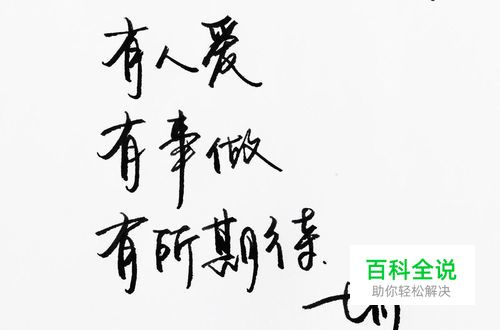 有人爱
有事做
有所期待.
百科全说
助你轻松解决